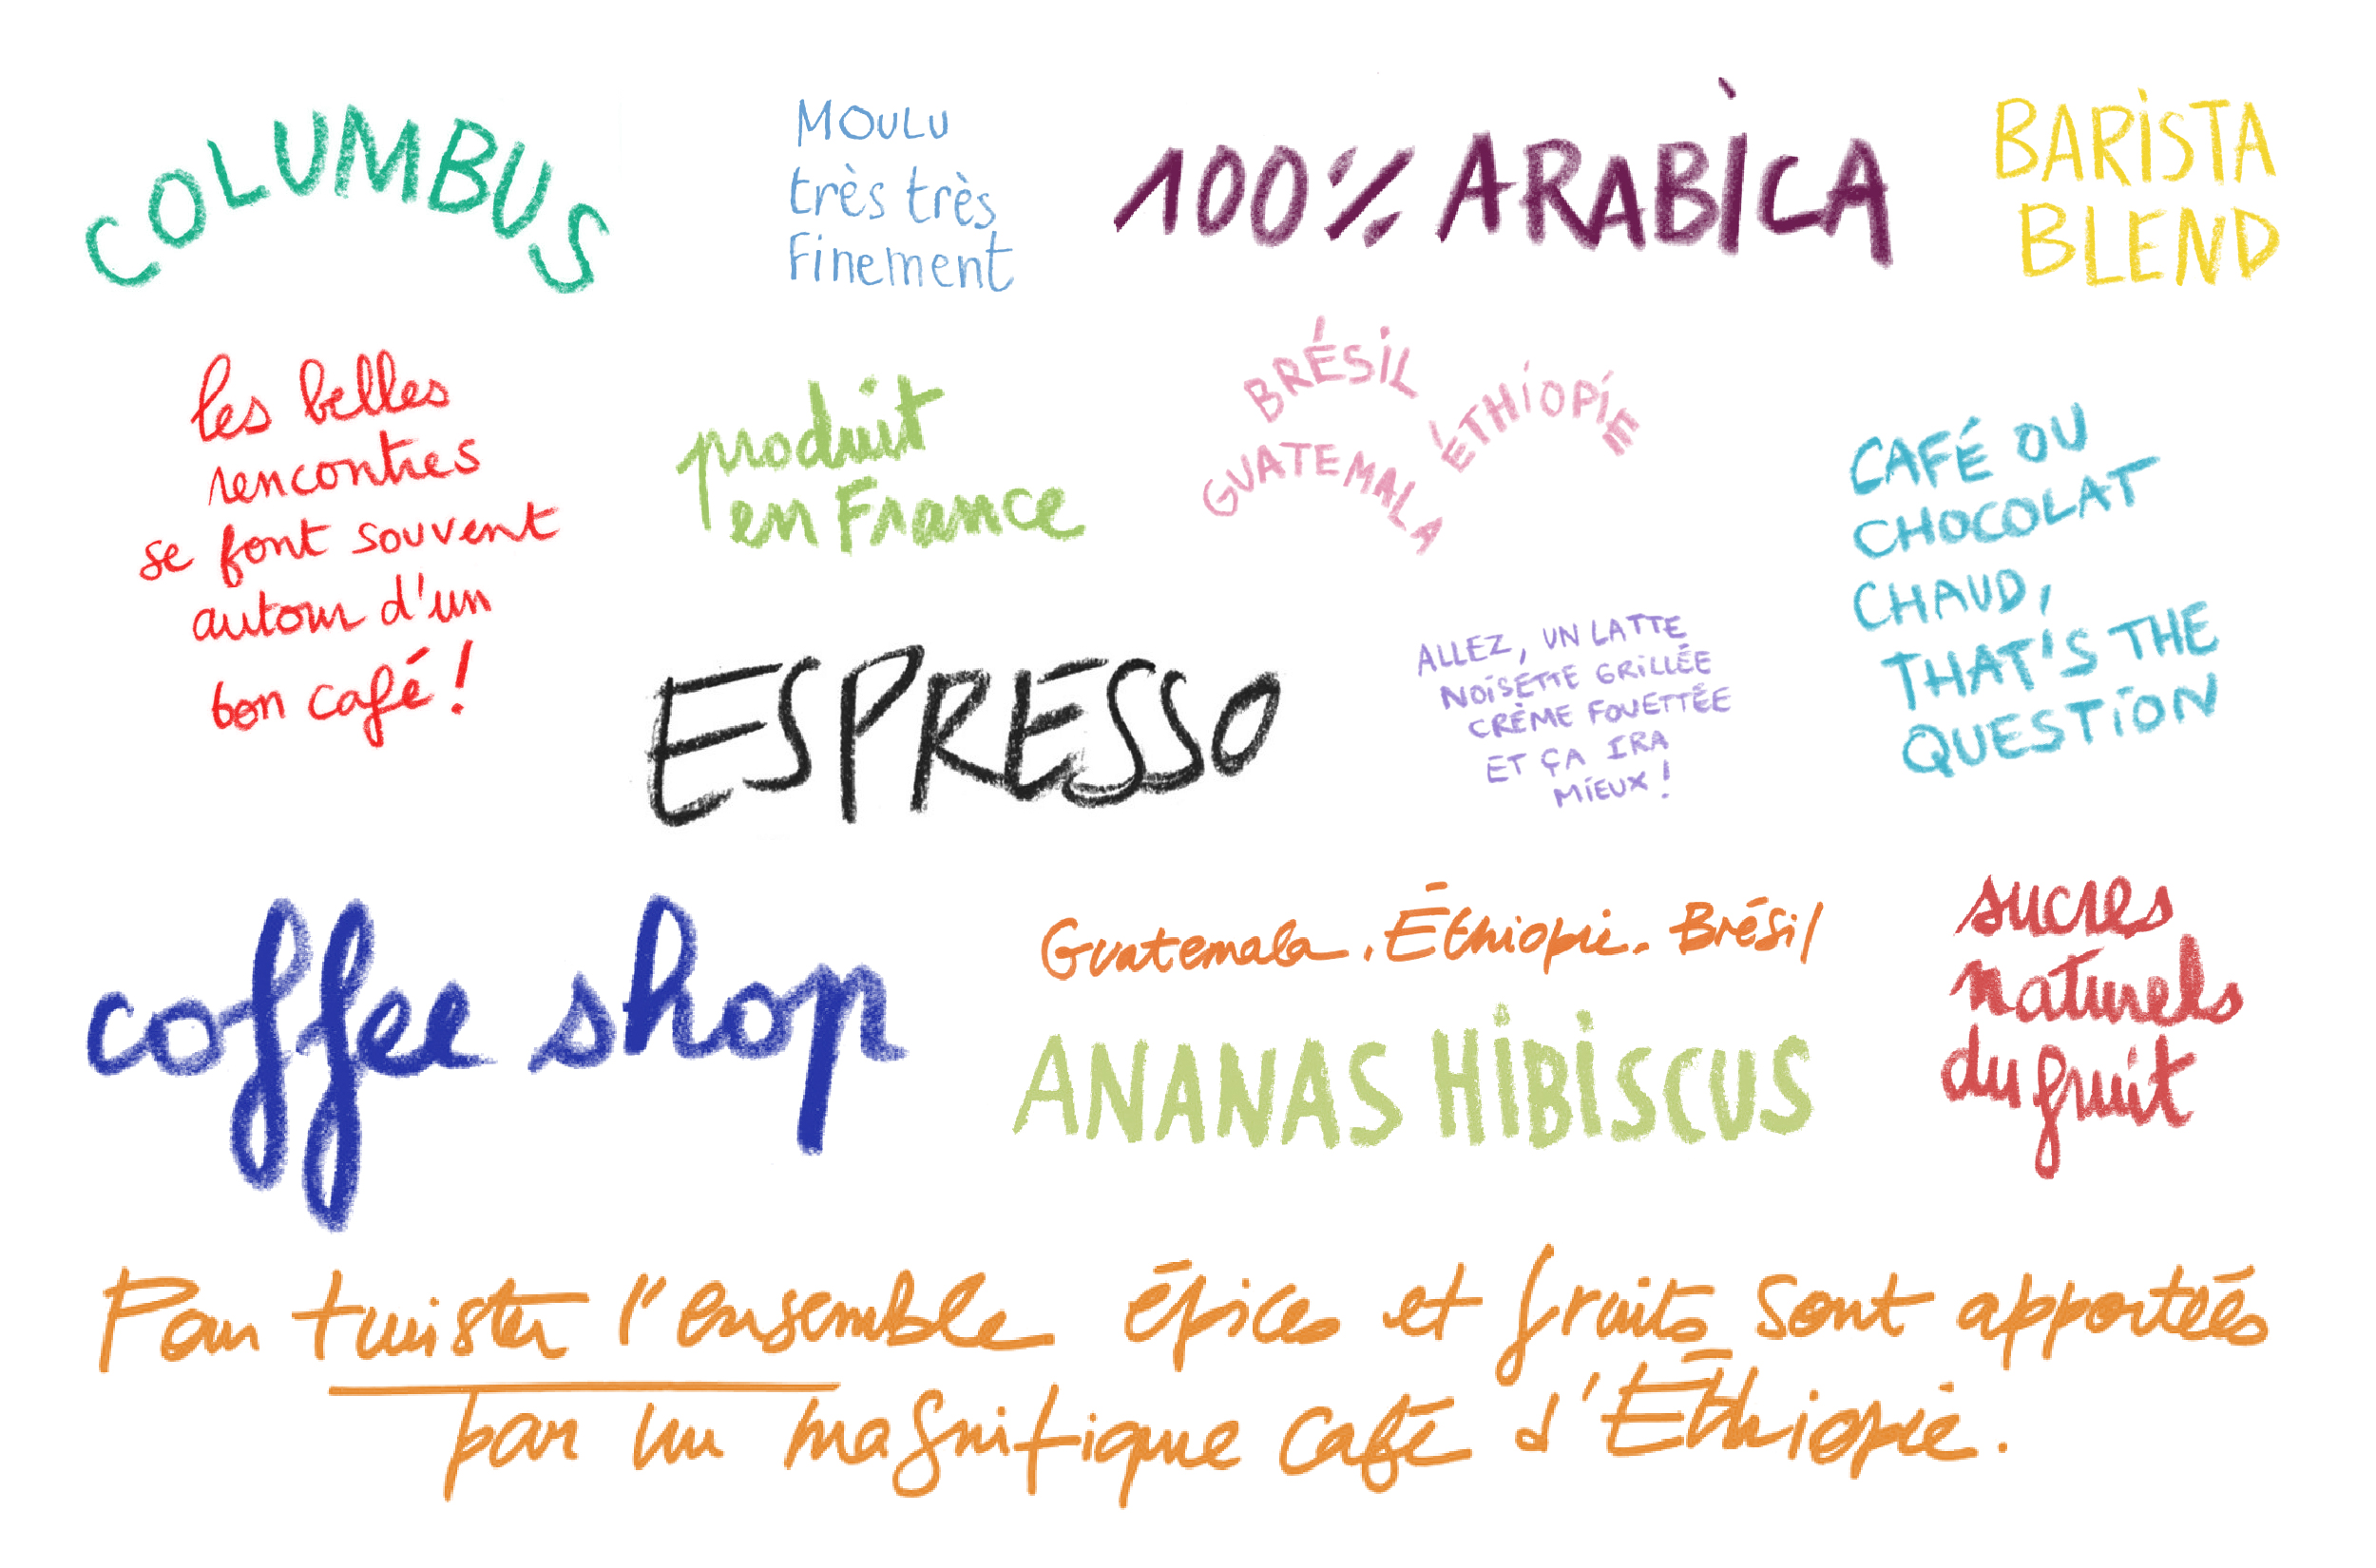 COLUMBUS
MOULU
très très
finement
100% ARABICA
BARISTA
BLEND
les belles
rencontres
se font souvent
autour d'un
bon café !
produit
en France
BRÉSIL
ÉTHIOPIE
GUATEMALA
CAFÉ OU
CHOCOLAT
CHAUD,
THAT'S THE
QUESTION
ESPRESSO
ALLEZ, UN LATTE
NOISETTE GRILLÉE
CRÈME FOUETTÉE
ET ÇA IRA
MIEUX !
coffee shop
Guatemala . Éthiopie . Brésil
ANANAS HIBISCUS
sucres
naturels
du fruit
Pour twister l'ensemble épices et fruits sont apportées
par un magnifique café d'Éthiopie.